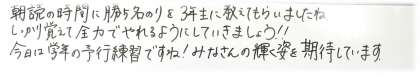 朝読の時間に勝ち名のりを3年生に教えてもらいましたね
しっかり覚えて全力でやれるようにしていきましょう!!
今日は学年の予行練習ですね!みなさんの輝く姿を期待しています